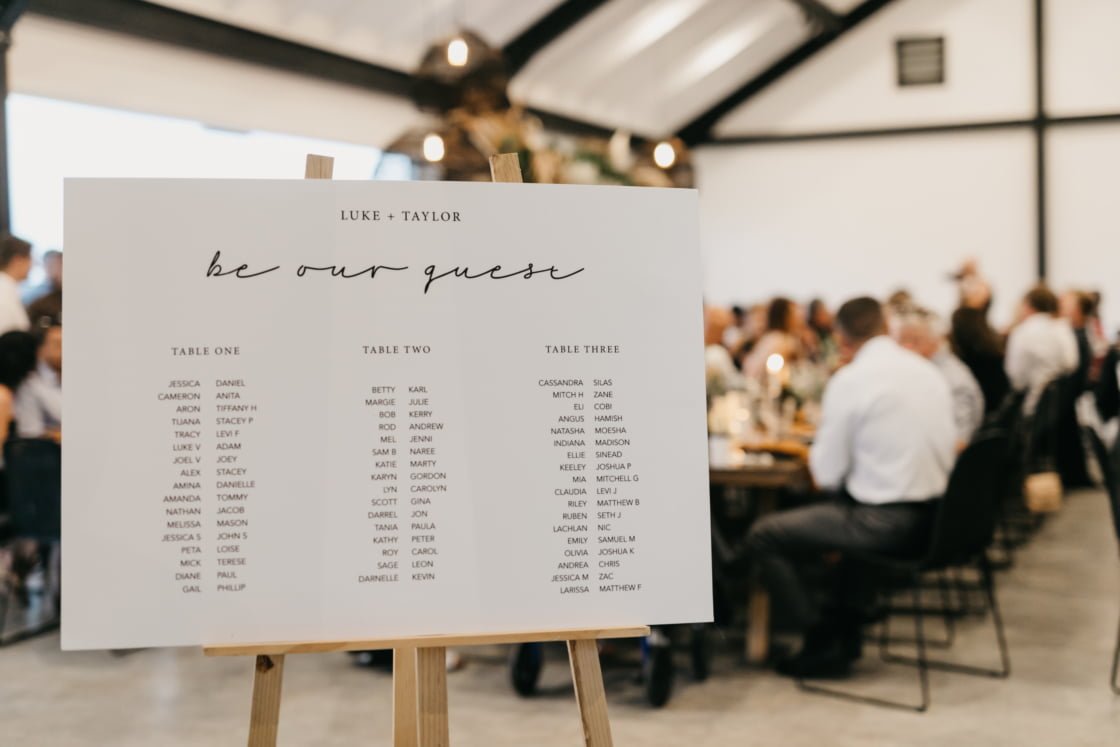 LUKE + TAYLOR
be our guest
TABLE ONE
JESSICA DANIEL
CAMERON ANITA
ARON TIFFANY H
TIJANA STACEY P
TRACY LEVI F
LUKE V ADAM
JOEL V JOEY
ALEX STACEY
AMINA DANIELLE
AMANDA TOMMY
NATHAN JACOB
MELISSA MASON
JESSICA S JOHN S
PETA LOISE
MICK TERESE
DIANE PAUL
GAIL PHILLIP
TABLE TWO
BETTY KARL
MARGIE JULIE
BOB KERRY
ROD ANDREW
MEL JENNI
SAM B NAREE
KATIE MARTY
KARYN GORDON
LYN CAROLYN
SCOTT GINA
DARREL JON
TANIA PAULA
KATHY PETER
ROY CAROL
SAGE LEON
DARNELLE KEVIN
TABLE THREE
CASSANDRA SILAS
MITCH H ZANE
ELI COBI
ANGUS HAMISH
NATASHA MOESHA
INDIANA MADISON
ELLIE SINEAD
KEELEY JOSHUA P
MIA MITCHELL G
CLAUDIA LEVI J
RILEY MATTHEW B
RUBEN SETH J
LACHLAN NIC
EMILY SAMUEL M
OLIVIA JOSHUA K
ANDREA CHRIS
JESSICA M ZAC
LARISSA MATTHEW F